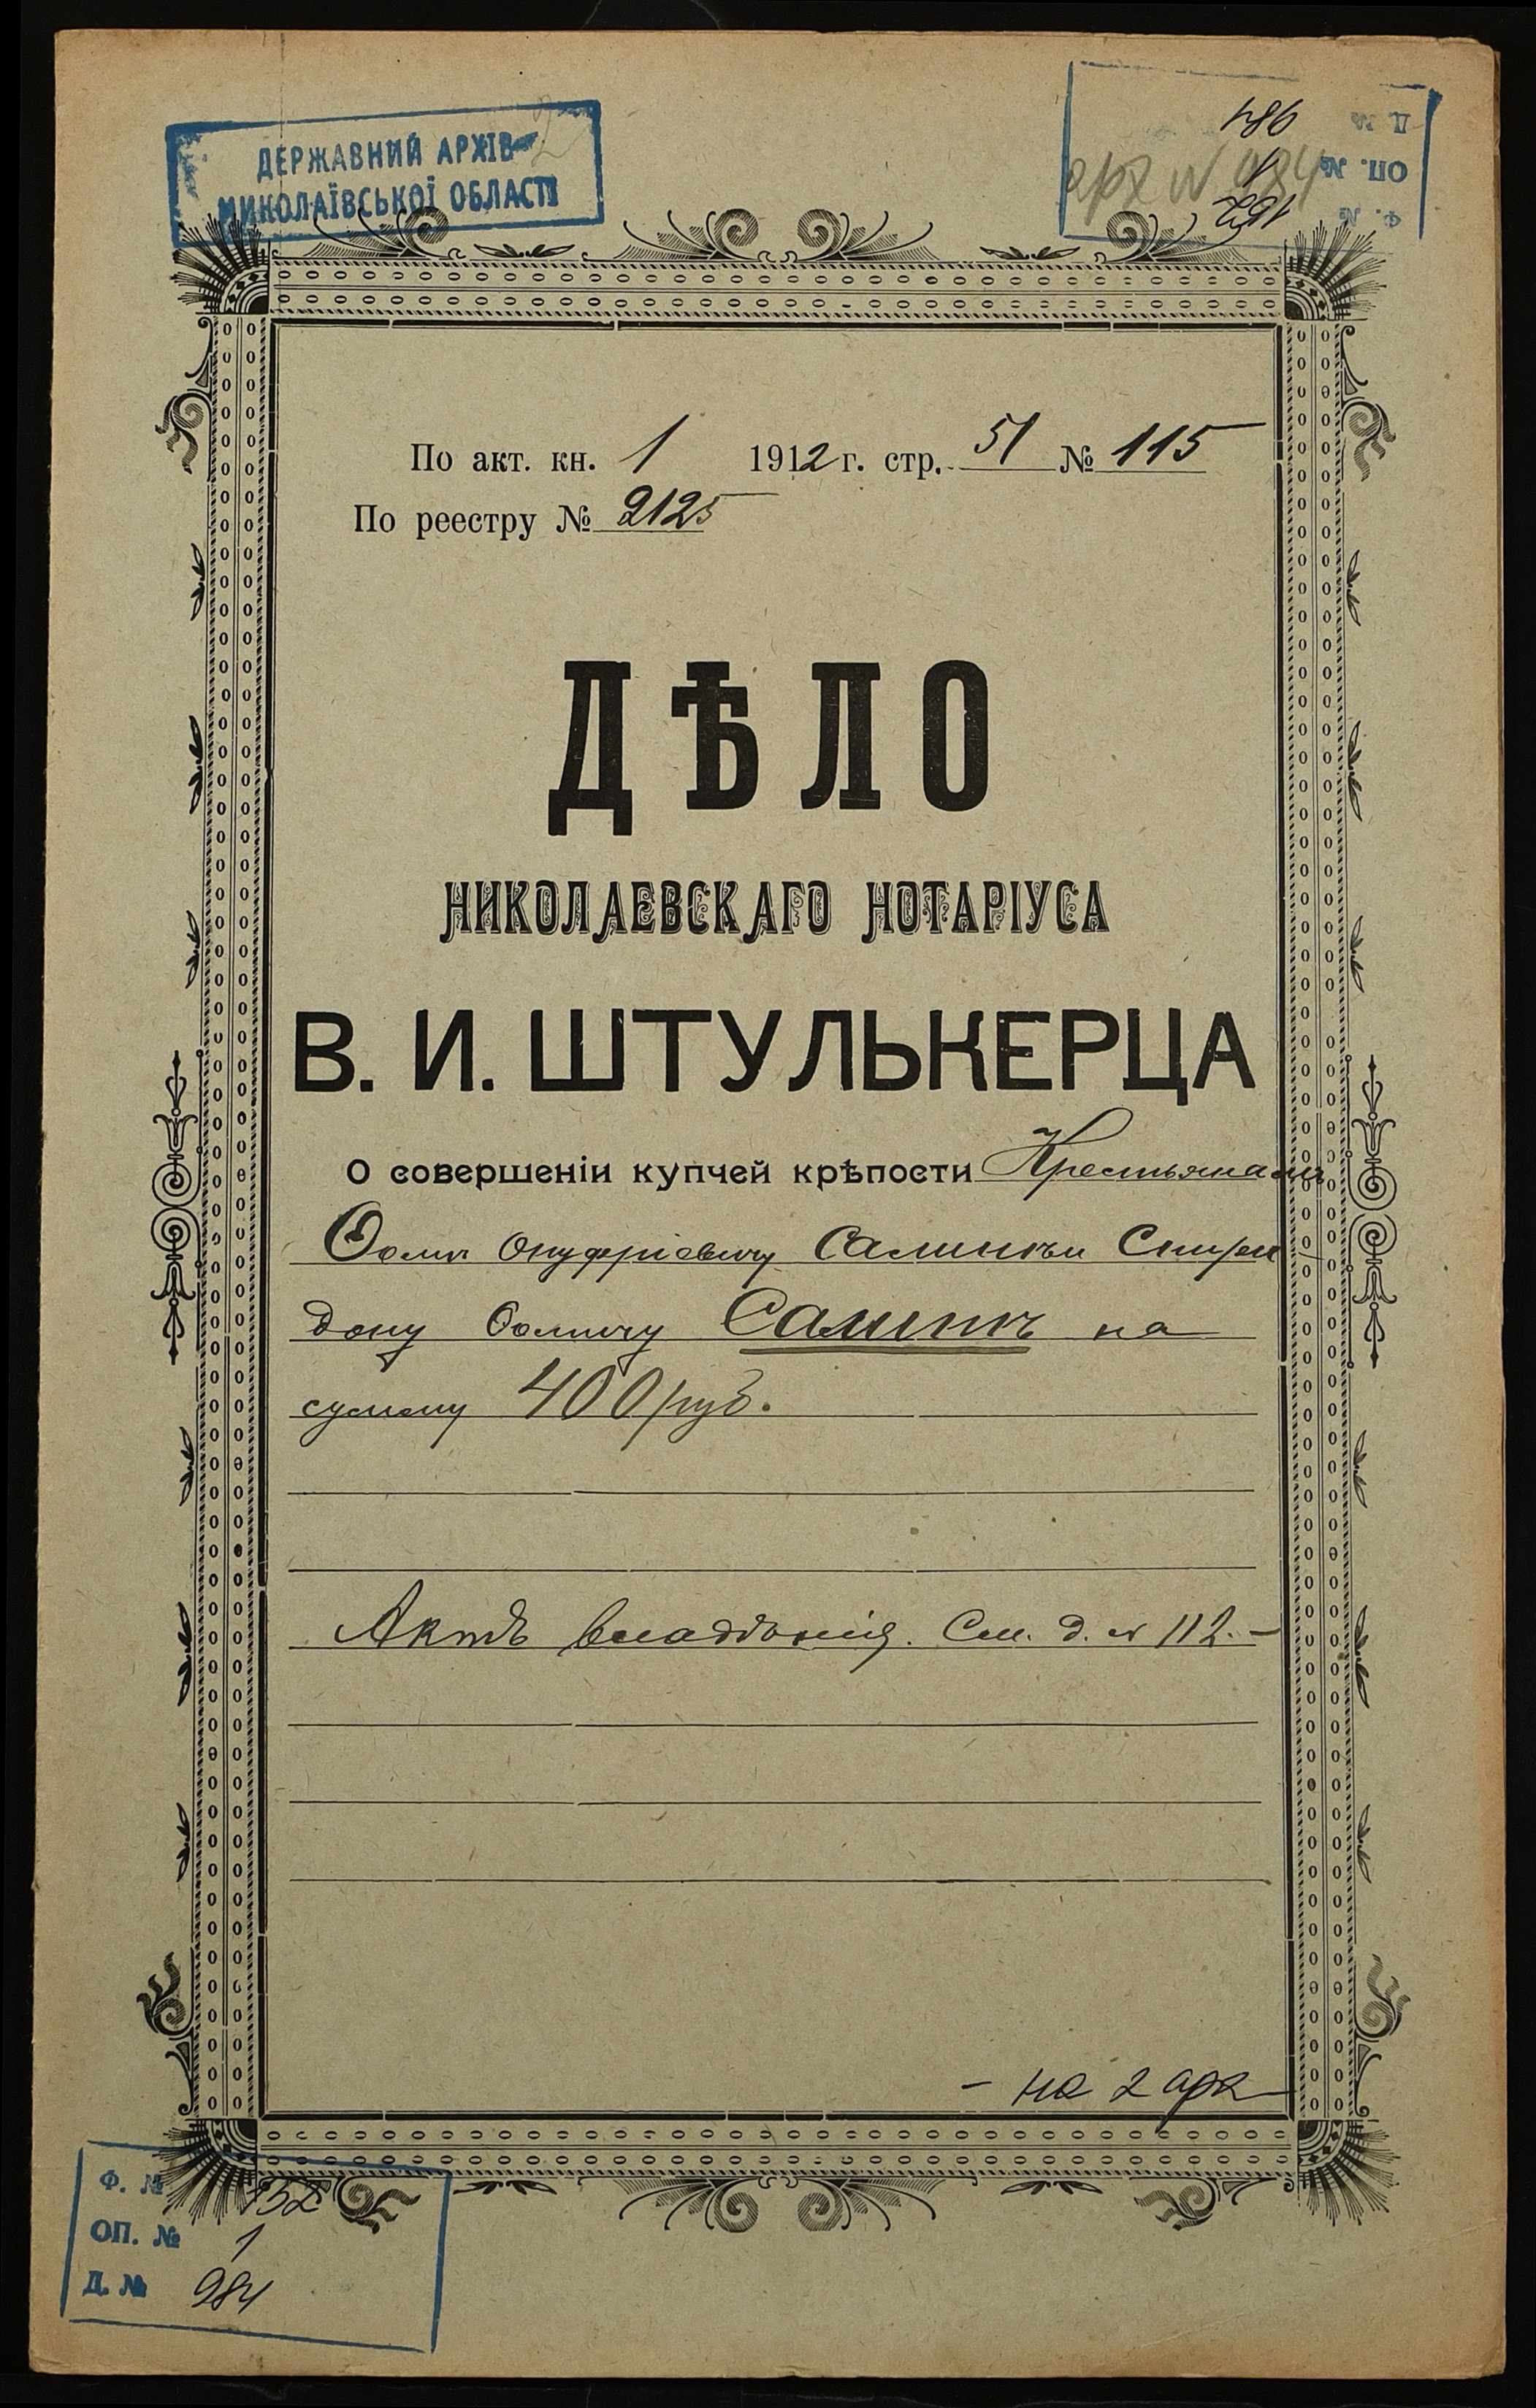 ДЕРЖАВНИЙ АРХІВ
МИКОЛАЇВСЬКОЇ ОБЛАСТІ
Ф. № 152
ОП. № 1
Д. № 984
арх № 984
По акт. кн. 1 1912 г. стр. 51 № 115
По реестру № 2125
ДѢЛО
НИКОЛАЕВСКАГО НОТАРІУСА
В. И. ШТУЛЬКЕРЦА
О совершеніи купчей крѣпости Крестьянамъ
Ѳомѣ Онуфріевичу Спири
дону Ѳомичу на
сумму 400 руб.
Актъ владѣнія. См. д. № 112. –
– на 2 арк
Ф. № 152
ОП. № 1
Д. № 984